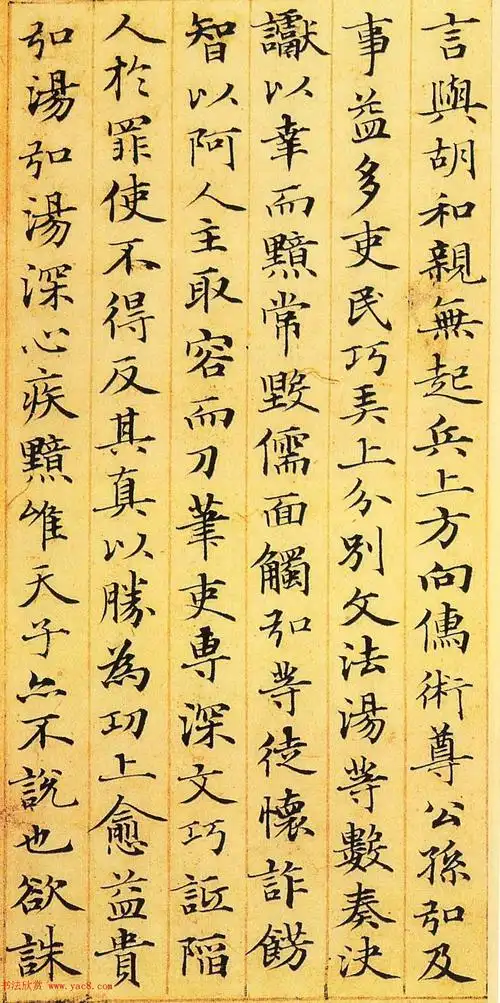 言與胡和親無起兵上方向儒術尊公孫弘及
事益多吏民巧弄上分別文法湯等數奏決
讞以幸而黯常毀儒面觸弘等徒懷詐飾
智以阿人主取容而刀筆吏專深文巧詆陷
人於罪使不得反其真以勝為功上愈益貴
弘湯弘湯深心疾黯唯天子亦不說也欲誅
书法欣赏 www.yac8.com